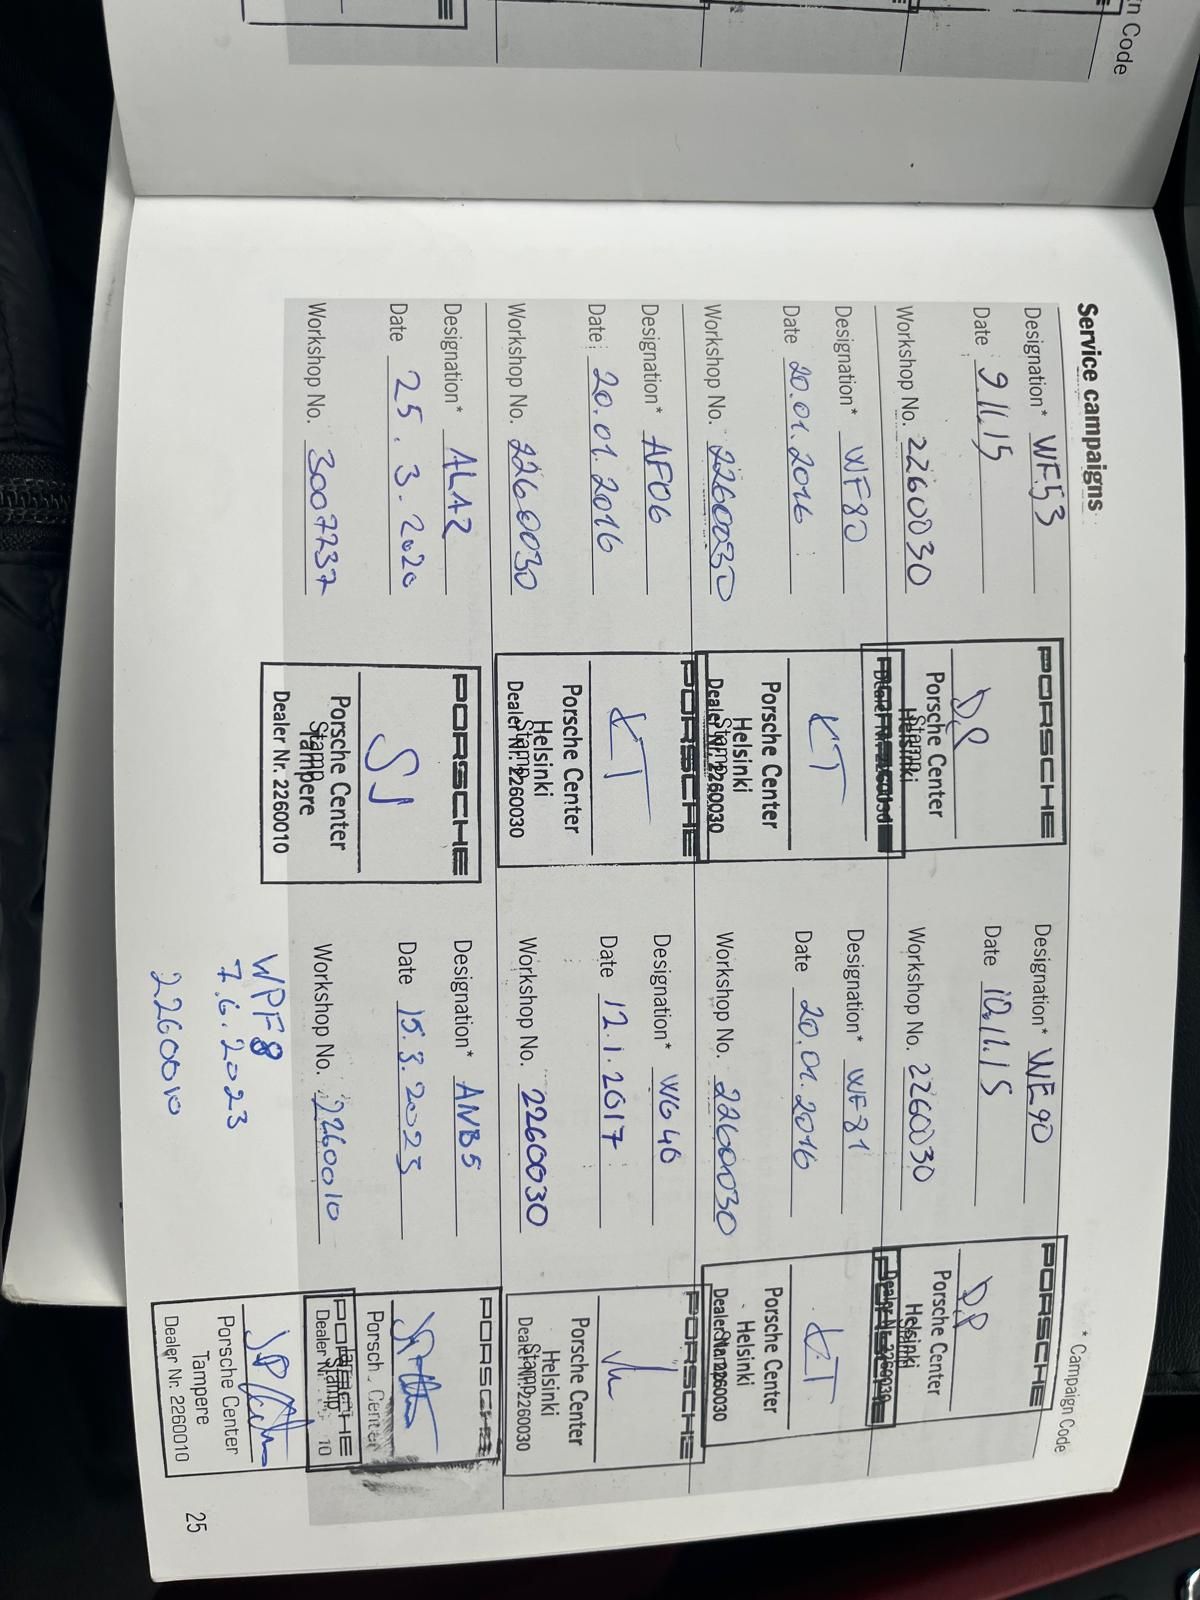 n Code
Service campaigns
* Campaign Code
Designation* WF53
Date 9.11.15
Workshop No. 2260030
PORSCHE
DP
Porsche Center
Helsinki
Stamp
Dealer Nr. 2260030
Designation* WE90
Date 10.11.15
Workshop No. 2260030
PORSCHE
DP
Porsche Center
Helsinki
Stamp
Dealer Nr. 2260030
Designation* WF80
Date 20.01.2016
Workshop No. 2260030
PORSCHE
KT
Porsche Center
Helsinki
Stamp
Dealer Nr. 2260030
Designation* WF81
Date 20.01.2016
Workshop No. 2260030
PORSCHE
KT
Porsche Center
Helsinki
Stamp
Dealer Nr. 2260030
Designation* AF06
Date 20.01.2016
Workshop No. 2260030
PORSCHE
KT
Porsche Center
Helsinki
Stamp
Dealer Nr. 2260030
Designation* WG46
Date 12.1.2017
Workshop No. 2260030
PORSCHE
Porsche Center
Helsinki
Stamp
Dealer Nr. 2260030
Designation* ALA2
Date 25.3.2020
Workshop No. 3007737
PORSCHE
SJ
Porsche Center
Stamp
Tampere
Dealer Nr. 2260010
Designation* ANB5
Date 15.3.2023
Workshop No. 2260010
PORSCHE
Porsche Center
Stamp
WPF8
7.6.2023
2260010
PORSCHE
Porsche Center
Tampere
Dealer Nr. 2260010
25